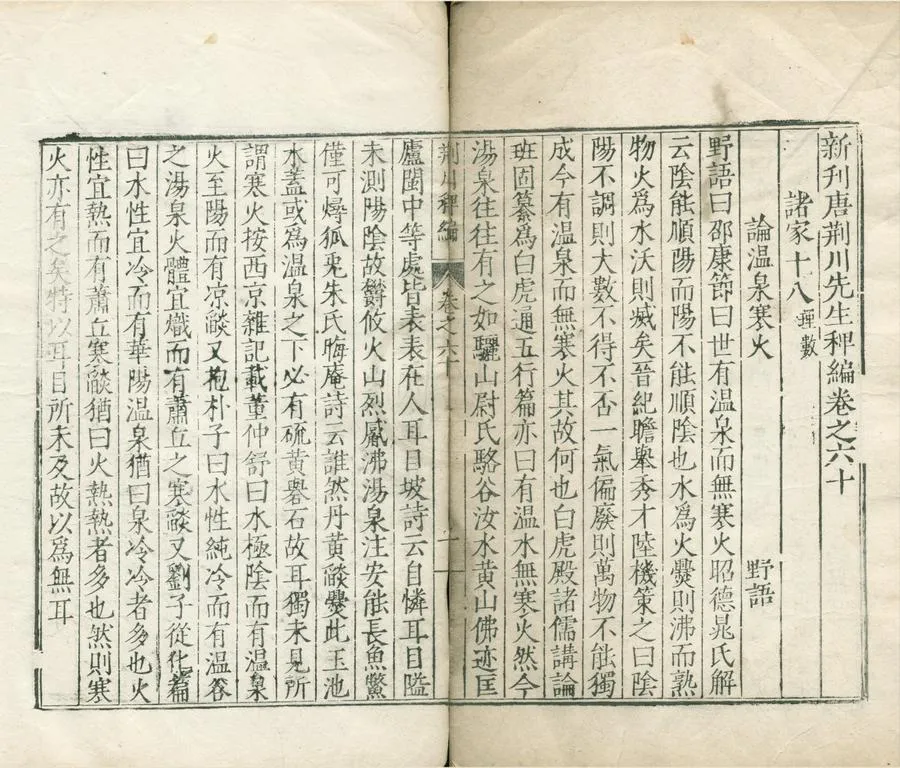 新刊唐荊川先生稗編卷之六十
諸家十八 曆數
論温泉寒火 野語
野語曰邵康節曰世有温泉而無寒火昭德晁氏解
云陰能順陽而陽不能順陰也水爲火爨則沸而熟
物火爲水沃則滅矣晉紀瞻舉秀才陸機策之曰陰
陽不調則大數不得不否一氣偏廢則萬物不能獨
成今有温泉而無寒火其故何也白虎殿諸儒講論
班固纂爲白虎通五行篇亦曰有温水無寒火然今
湯泉往往有之如驪山尉氏駱谷汝水黄山佛迹匡
荆川稗編 卷之六十 一
廬閩中等處皆表表在人耳目坡詩云自憐耳目隘
未測陽陰故欝攸火山烈觱沸湯泉注安能長魚鱉
僅可燖狐兎朱氏晦庵詩云誰然丹黄燄爨此玉池
水蓋或爲温泉之下必有硫黄礜石故耳獨未見所
謂寒火按西京雜記載董仲舒曰水極陰而有温泉
火至陽而有凉燄又抱朴子曰水性純冷而有温谷
之湯泉火體宜熾而有蕭丘之寒燄又劉子從化篇
曰水性宜冷而有華陽温泉猶曰泉冷冷者多也火
性宜熱而有蕭丘寒燄猶曰火熱熱者多也然則寒
火亦有之矣特以耳目所未及故以爲無耳